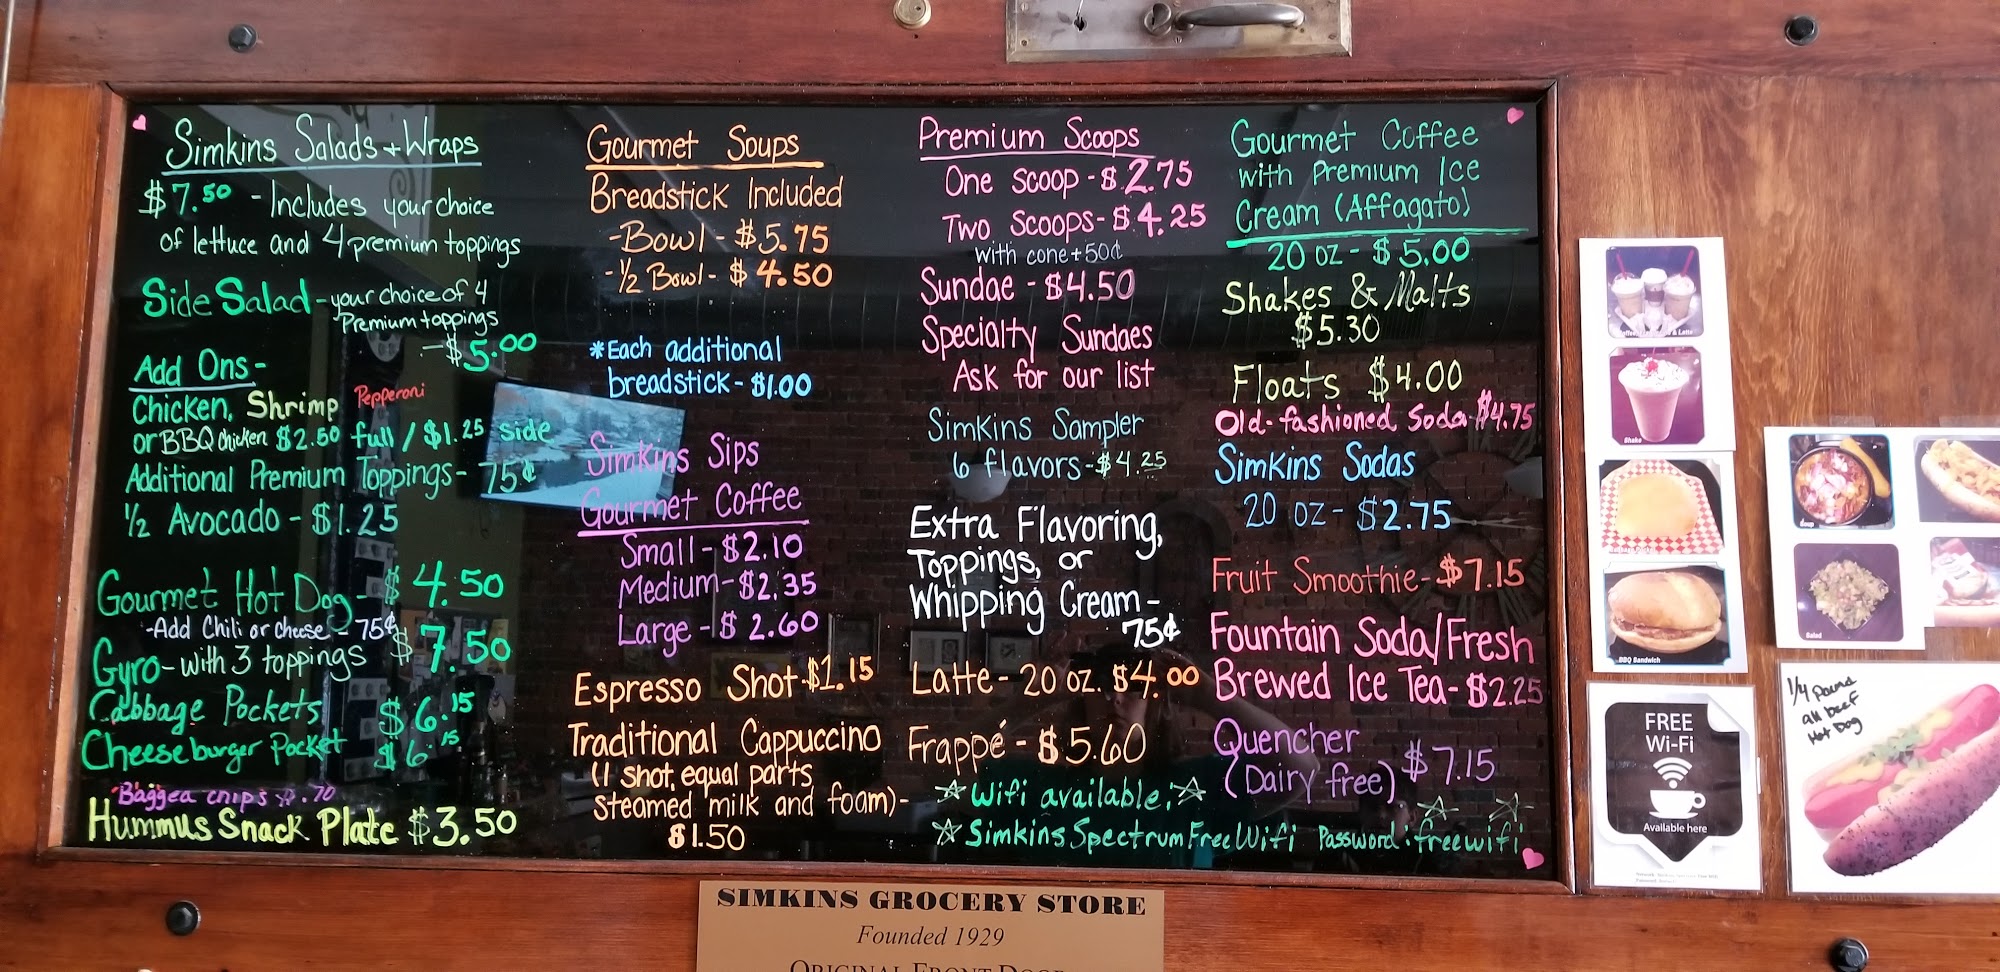 Simkins Salads + Wraps
$7.50 - Includes your choice
of lettuce and 4 premium toppings
Side Salad - your choice of 4
Premium toppings
- $5.00
Add Ons -
Chicken, Shrimp Pepperoni
or BBQ chicken $2.50 full / $1.25 side
Additional Premium Toppings - 75¢
1/2 Avocado - $1.25
Gourmet Hot Dog - $4.50
- Add Chili or cheese - 75¢
Gyro - with 3 toppings $7.50
Cabbage Pockets $6.15
Cheeseburger Pocket $6.15
Bagged chips $.70
Hummus Snack Plate $3.50
Gourmet Soups
Breadstick Included
- Bowl - $5.75
- 1/2 Bowl - $4.50
*Each additional
breadstick - $1.00
Simkins Sips
Gourmet Coffee
Small - $2.10
Medium - $2.35
Large - $2.60
Espresso Shot $1.15
Traditional Cappuccino
(1 shot, equal parts
steamed milk and foam) -
$1.50
Premium Scoops
One scoop - $2.75
Two scoops - $4.25
with cone + 50¢
Sundae - $4.50
Specialty Sundaes
Ask for our list
Simkins Sampler
6 flavors - $4.25
Extra Flavoring,
Toppings, or
Whipping Cream -
75¢
Latte - 20 oz. $4.00
Frappé - $5.60
☆ Wifi available: ☆
☆ Simkins Spectrum Free Wifi Password: freewifi
Gourmet Coffee
with Premium Ice
Cream (Affagato)
20 oz - $5.00
Shakes & Malts
$5.30
Floats $4.00
Old-fashioned Soda $4.75
Simkins Sodas
20 oz - $2.75
Fruit Smoothie - $7.15
Fountain Soda/Fresh
Brewed Ice Tea - $2.25
Quencher
(Dairy free) $7.15
Shake
BBQ Sandwich
FREE
Wi-Fi
Available here
Soup
Salad
1/4 Pound
all beef
Hot Dog
SIMKINS GROCERY STORE
Founded 1929
ORIGINAL FRONT DOOR